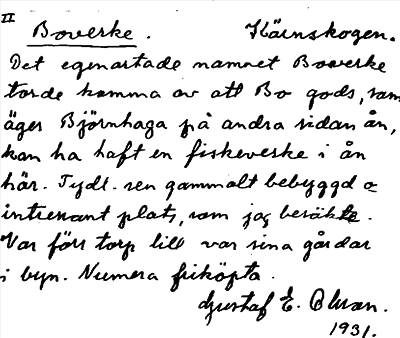 II
Boverke. Kärnskogen.
Det egenartade namnet Boverke
torde komma av att Bo gods, som
äger Björnhaga på andra sidan ån,
kan ha haft en fiskeverke i ån
här. Tydl. sen gammalt bebyggd o
intressant plats, som jag besökte.
Var förr torp till var sina gårdar
i byn. Numera friköpta.
Gustaf E. Olsson.
1931.